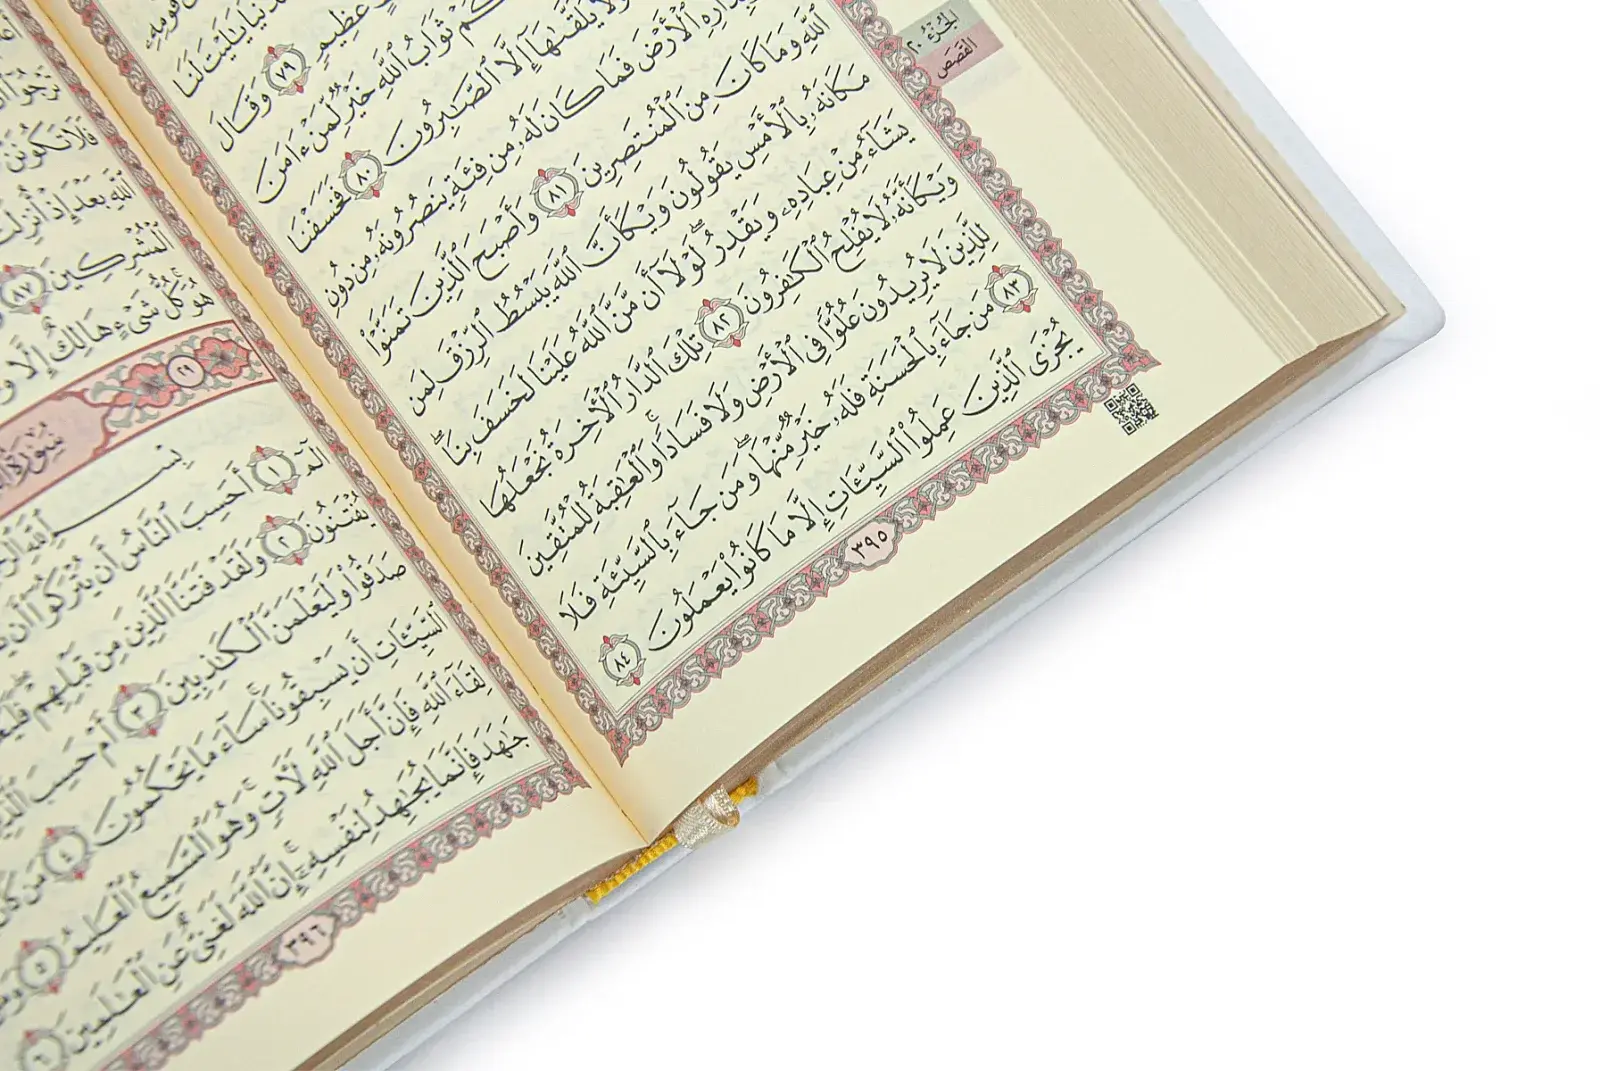 قَوْمِهِۦ
يَٰلَيْتَ لَنَا
عَظِيمٍ ٧٩ وَقَالَ
ثَوَابُ ٱللَّهِ خَيْرٌ لِّمَنْ ءَامَنَ
وَلَا يُلَقَّىٰهَآ إِلَّا ٱلصَّٰبِرُونَ ٨٠ فَخَسَفْنَا
ٱلْأَرْضَ فَمَا كَانَ لَهُۥ مِن فِئَةٍ يَنصُرُونَهُۥ مِن دُونِ
ٱللَّهِ وَمَا كَانَ مِنَ ٱلْمُنتَصِرِينَ ٨١ وَأَصْبَحَ ٱلَّذِينَ تَمَنَّوْا۟
مَكَانَهُۥ بِٱلْأَمْسِ يَقُولُونَ وَيْكَأَنَّ ٱللَّهَ يَبْسُطُ ٱلرِّزْقَ لِمَن
يَشَآءُ مِنْ عِبَادِهِۦ وَيَقْدِرُ ۖ لَوْلَآ أَن مَّنَّ ٱللَّهُ عَلَيْنَا لَخَسَفَ بِنَا ۖ
وَيْكَأَنَّهُۥ لَا يُفْلِحُ ٱلْكَٰفِرُونَ ٨٢ تِلْكَ ٱلدَّارُ ٱلْأَخِرَةُ نَجْعَلُهَا
لِلَّذِينَ لَا يُرِيدُونَ عُلُوًّا فِى ٱلْأَرْضِ وَلَا فَسَادًا ۚ وَٱلْعَٰقِبَةُ لِلْمُتَّقِينَ
٨٣ مَن جَآءَ بِٱلْحَسَنَةِ فَلَهُۥ خَيْرٌ مِّنْهَا ۖ وَمَن جَآءَ بِٱلسَّيِّئَةِ فَلَا
يُجْزَى ٱلَّذِينَ عَمِلُوا۟ ٱلسَّيِّـَٔاتِ إِلَّا مَا كَانُوا۟ يَعْمَلُونَ ٨٤
٣٩٥
الجُزْءُ ٢٠
القَصَص
تَرْجُوٓا۟
فَلَا تَكُونَنَّ
ٱللَّهِ بَعْدَ إِذْ أُنزِلَتْ
ٱلْمُشْرِكِينَ ٨٧
هُوَ ۚ كُلُّ شَىْءٍ هَالِكٌ إِلَّا
٢٩
سُورَةُ
بِسْمِ ٱللَّهِ
الٓمٓ ١ أَحَسِبَ ٱلنَّاسُ أَن يُتْرَكُوٓا۟ أَن
يُفْتَنُونَ ٢ وَلَقَدْ فَتَنَّا ٱلَّذِينَ مِن قَبْلِهِمْ ۖ
صَدَقُوا۟ وَلَيَعْلَمَنَّ ٱلْكَٰذِبِينَ ٣ أَمْ حَسِبَ
ٱلسَّيِّـَٔاتِ أَن يَسْبِقُونَا ۚ سَآءَ مَا يَحْكُمُونَ ٤ مَن كَانَ
لِقَآءَ ٱللَّهِ فَإِنَّ أَجَلَ ٱللَّهِ لَءَاتٍ ۚ وَهُوَ ٱلسَّمِيعُ ٱلْعَلِيمُ ٥
جَٰهَدَ فَإِنَّمَا يُجَٰهِدُ لِنَفْسِهِۦٓ ۚ إِنَّ ٱللَّهَ لَغَنِىٌّ عَنِ ٱلْعَٰلَمِينَ ٦
٣٩٦